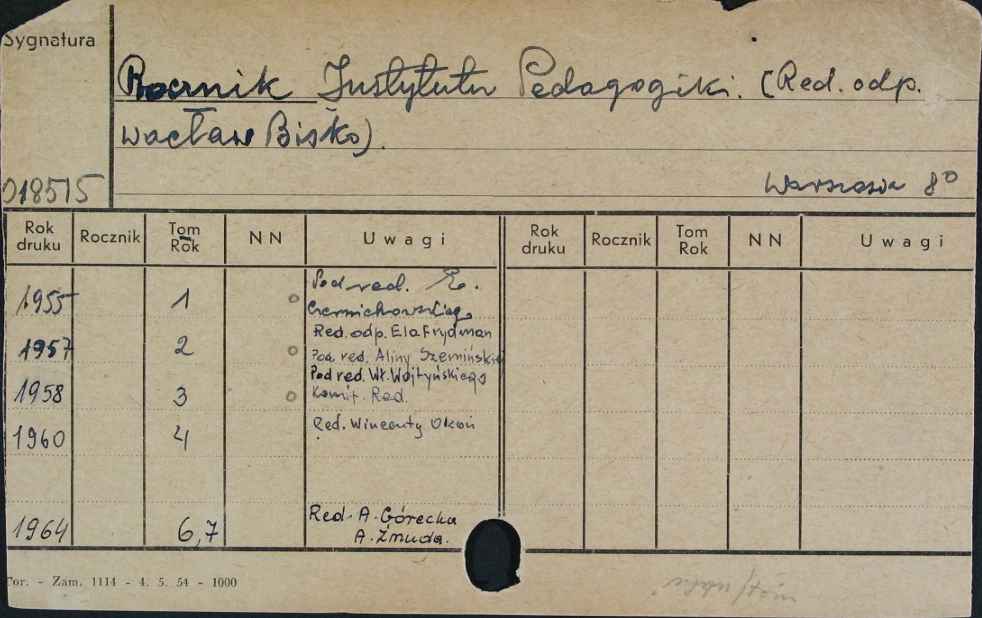 Sygnatura
Rocznik Instytutu Pedagogiki. (Red. odp.
Wacław Biśko).
018515
Warszawa 8⁰
Rok druku Rocznik Tom Rok N N U w a g i Rok druku Rocznik Tom Rok N N U w a g i
1955 1 Pod red. E.
Czernichowskiego
Red. odp. Ela Frydman
1957 2 Pod. red. Aliny Szemińskiej
Pod red. Wł. Wojtyńskiego
1958 3 Komit. Red.
1960 4 Red. Wincenty Okoń
1964 6,7 Red. A. Górecka
A. Żmuda.
Tor. - Zam. 1114 - 4. 5. 54 - 1000